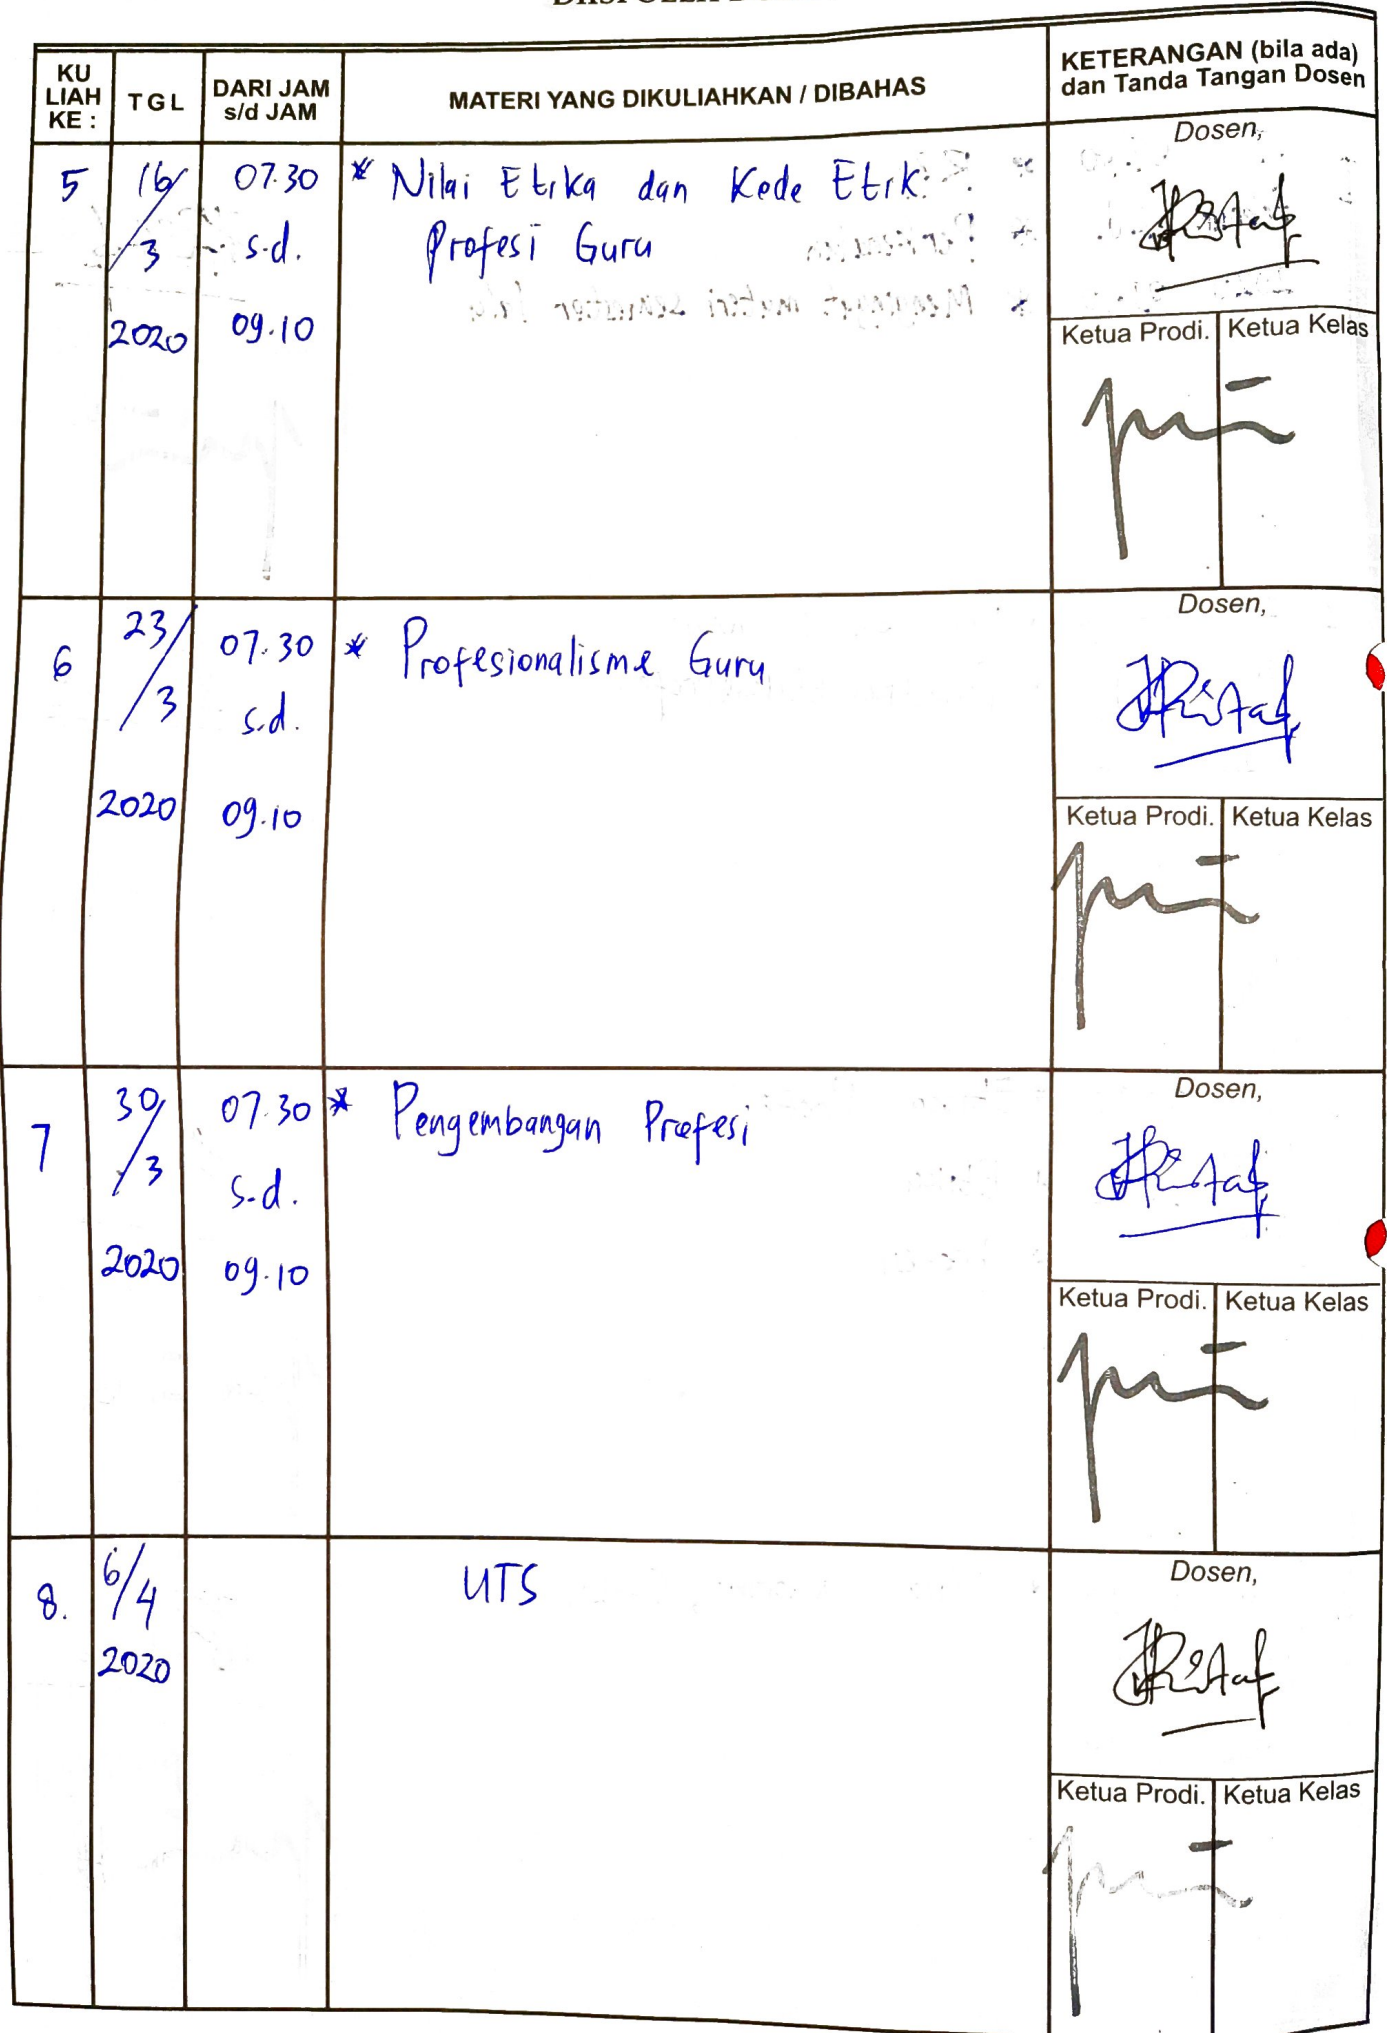 KU LIAH KE :
TGL
DARI JAM s/d JAM
MATERI YANG DIKULIAHKAN / DIBAHAS
KETERANGAN (bila ada)
dan Tanda Tangan Dosen
5
16/3
2020
07.30
s.d.
09.10
* Nilai Etika dan Kode Etik
Profesi Guru
Dosen,
Ketua Prodi.
Ketua Kelas
6
23/3
2020
07.30
s.d.
09.10
* Profesionalisme Guru
Dosen,
Ketua Prodi.
Ketua Kelas
7
30/3
2020
07.30
s.d.
09.10
* Pengembangan Profesi
Dosen,
Ketua Prodi.
Ketua Kelas
8.
6/4
2020
UTS
Dosen,
Ketua Prodi.
Ketua Kelas